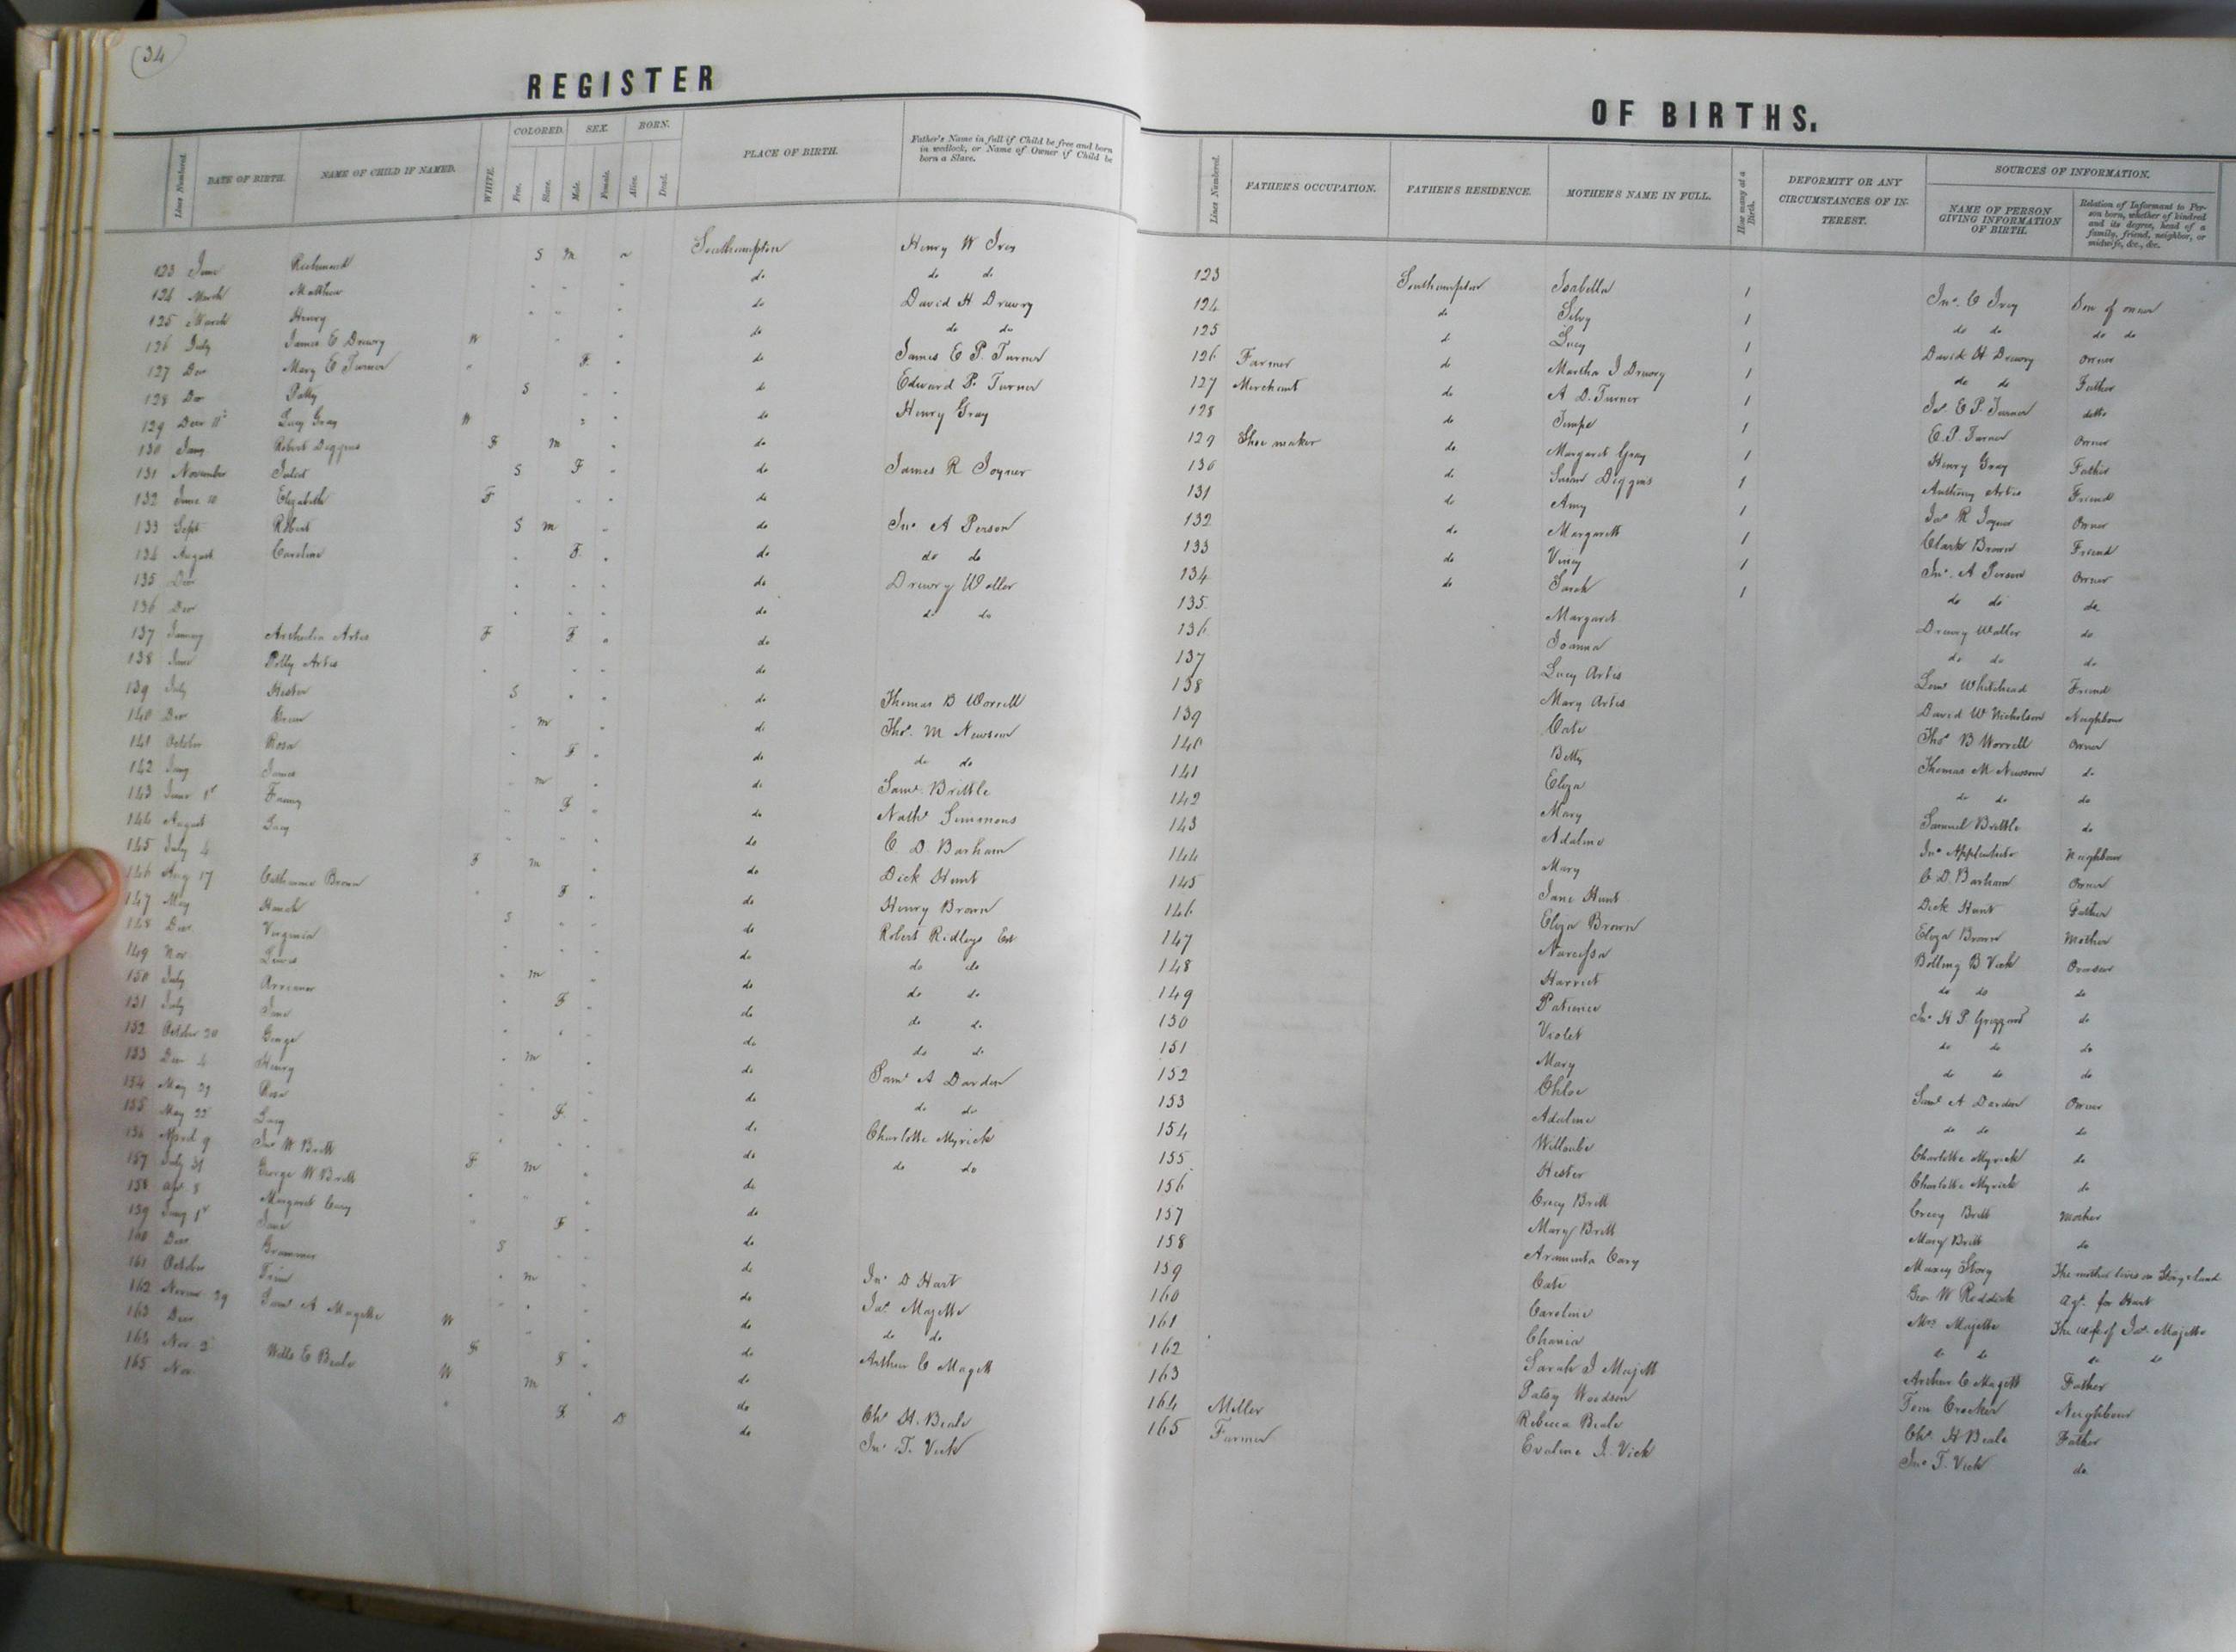 34
REGISTER
Lines Numbered. DATE OF BIRTH. NAME OF CHILD IF NAMED. WHITE. COLORED. Free. Slave. SEX. Male. Female. BORN. Alive. Dead. PLACE OF BIRTH. Father's Name in full if Child be free and born in wedlock, or Name of Owner if Child be born a Slave.
123 June Richmond S m a Southampton Henry W Ivey
124 March Matthew " " " do do do
125 March Henry " " " do David H Drewry
126 July James E Drewry W " " do do do
127 Dec Mary E Turner " F " do James E P. Turner
128 Dec Patty S " " do Edward P. Turner
129 Decr 11th Lucy Gray W " " do Henry Gray
130 Jany Robert Diggins F m " do
131 November S F " do James R Joyner
132 June 10 Elizabeth F " " do
133 Sept Robert S m " do Jno. A Person
134 August Caroline " F " do do do
135 Dec " " " do Drewry Waller
136 Dec " " " do do do
137 January Artis F F " do
138 June Polly Artis " " " do
139 July Hester S " " do Thomas B Worrell
140 Dec " m " do Thos. M Newsom
141 October Rosa " F " do do do
142 Jany James " m " do Saml. Brittle
143 June 1st Fanny " F " do Nathl Simmons
144 August Lucy " " " do C. D. Barham
145 July 4 F m " do Dick Hunt
146 Aug 17 Catharine Brown " F " do Henry Brown
147 May S " " do Robert Ridleys Est
148 Dec Virginia " " " do do do
149 Nov Lewis " m " do do do
150 July " F " do do do
151 July Jane " " " do do do
152 October 20 George " m " do Saml A Darden
153 Dec 4 Henry " " " do do do
154 May 29 Rosa " F " do Charlotte Myrick
155 May 22 Lucy " " " do do do
156 April 9 Jno W Britt F m " do
157 July 31 George W Britt " " " do
158 Apl. 8 Margaret Cary " F " do
159 Jany 1st Jane S " " do Jno D Hart
160 Dec " m " do Jas. Majette
161 October " " " do do do
162 29 Saml A Magette W " " do Arthur C Magett
163 Dec F F " do
164 Nov 2 Wills E Beale W m " do Chs. H. Beale
165 Nov " F D do Jno. T. Vick
OF BIRTHS.
Lines Numbered. FATHER'S OCCUPATION. FATHER'S RESIDENCE. MOTHER'S NAME IN FULL. How many at a Birth. DEFORMITY OR ANY CIRCUMSTANCES OF INTEREST. SOURCES OF INFORMATION. NAME OF PERSON GIVING INFORMATION OF BIRTH. Relation of Informant to Person born, whether of kindred and its degree, head of a family, friend, neighbor, or midwife, &c., &c.
123 Southampton Isabella 1 Jno. C Ivey Son of owner
124 do Silvy 1 do do do do
125 do Lucy 1 David H Drewry Owner
126 Farmer do Martha J Drewry 1 do do Father
127 Merchant do A D. Turner 1 Js. E P. Turner ditto
128 do Tempe 1 E. P. Turner Owner
129 Shoe maker do Margaret Gray 1 Henry Gray Father
130 do Susan Diggins 1 Anthony Artis Friend
131 do Amy 1 Jas. R Joyner Owner
132 do Margarett 1 Clark Brown Friend
133 do Viney 1 Jno. A Person Owner
134 do Sarah 1 do do do
135 Margaret Drewry Waller do
136 Joanna do do do
137 Lucy Artis Whitehead Friend
138 Mary Artis David W Nicholson Neighbour
139 Cate Thos B Worrell Owner
140 Betty Thomas M Newsom do
141 Eliza do do do
142 Mary Samuel Brittle do
143 Adaline Jno Neighbour
144 Mary C D. Barham Owner
145 Jane Hunt Dick Hunt Father
146 Eliza Brown Eliza Brown Mother
147 Narcissa Bolling B Vick
148 Harriet do do do
149 Patience Jno H P. Grizzard do
150 Violet do do do
151 Mary do do do
152 Chloe Saml A Darden Owner
153 Adaline do do do
154 Willoube Charlotte Myrick do
155 Hester Charlotte Myrick do
156 Creecy Britt Creecy Britt Mother
157 Mary Britt Mary Britt do
158 Araminta Cary Maxey Story The mother lives on Storys land
159 Cate Geo W Reddick Agt. for Hart
160 Caroline Mrs Majette The wife of Jas. Majette
161 Chania do do do do
162 Sarah J Majett Arthur C Magett Father
163 Patsy Woodson Tom Crocker Neighbour
164 Miller Rebecca Beale Chs. H Beale Father
165 Farmer Evaline J. Vick Jno T. Vick do